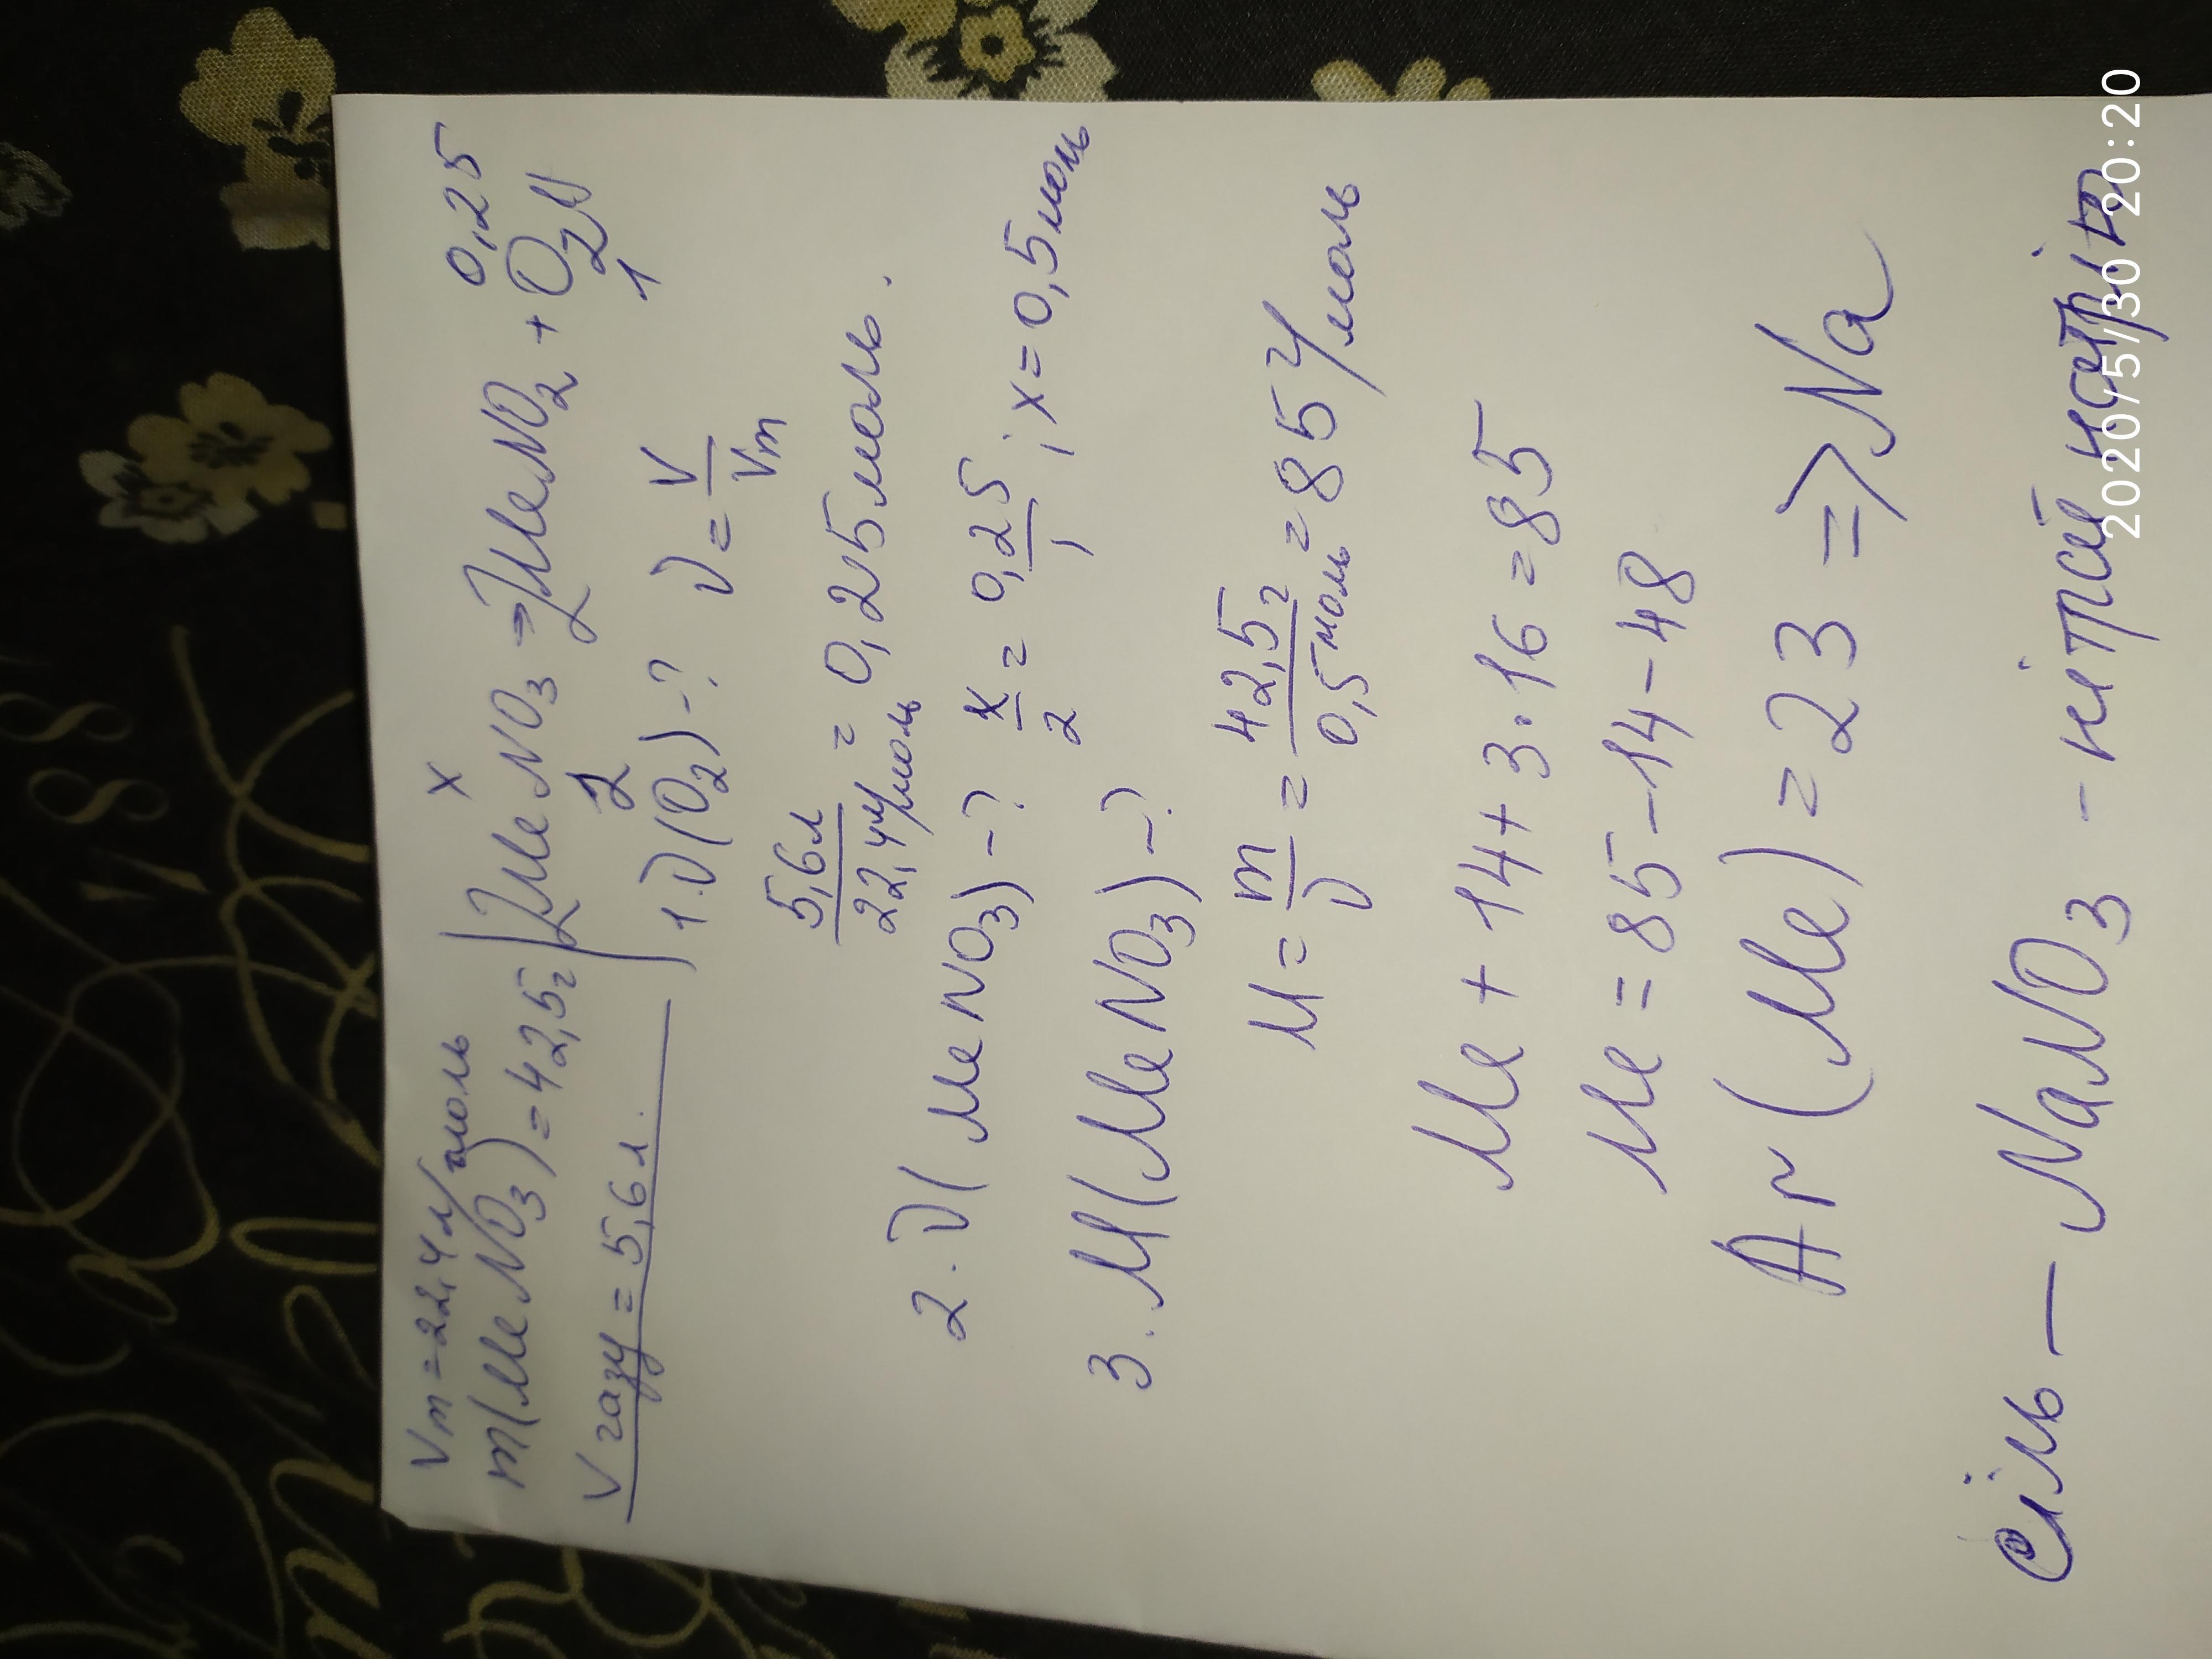 Vm = 22,4 л/моль
m(MeNO3) = 42,5г
Vгазу = 5,6л.
x 0,25
2MeNO3 → 2MeNO2 + O2↑
2 2 1
1. ν(O2) - ? ν = V/Vm
5,6л / 22,4 л/моль = 0,25 моль.
2. ν(MeNO3) - ? x/2 = 0,25/1 ; x = 0,5 моль
3. M(MeNO3) - ?
M = m/ν = 42,5г / 0,5 моль = 85 г/моль
Me + 14 + 3·16 = 85
Me = 85 - 14 - 48
Ar(Me) = 23 => Na
Сіль — NaNO3 - натрій
2020/5/30 20:20